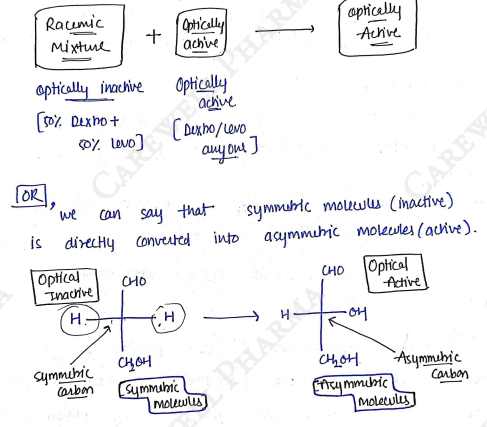 Racemic Mixture + Optically active → Optically Active
optically inactive
[50% Dextro + 50% Levo]
Optically active
[Dextro/Levo any one]
OR, we can say that symmetric molecules (inactive)
is directly converted into asymmetric molecules (active).
Optical Inactive
CHO
H H
CH2OH
Symmetric Carbon
Symmetric molecules
→
Optical Active
CHO
H OH
CH2OH
Asymmetric Carbon
Asymmetric molecules
CAREWELL PHARMA